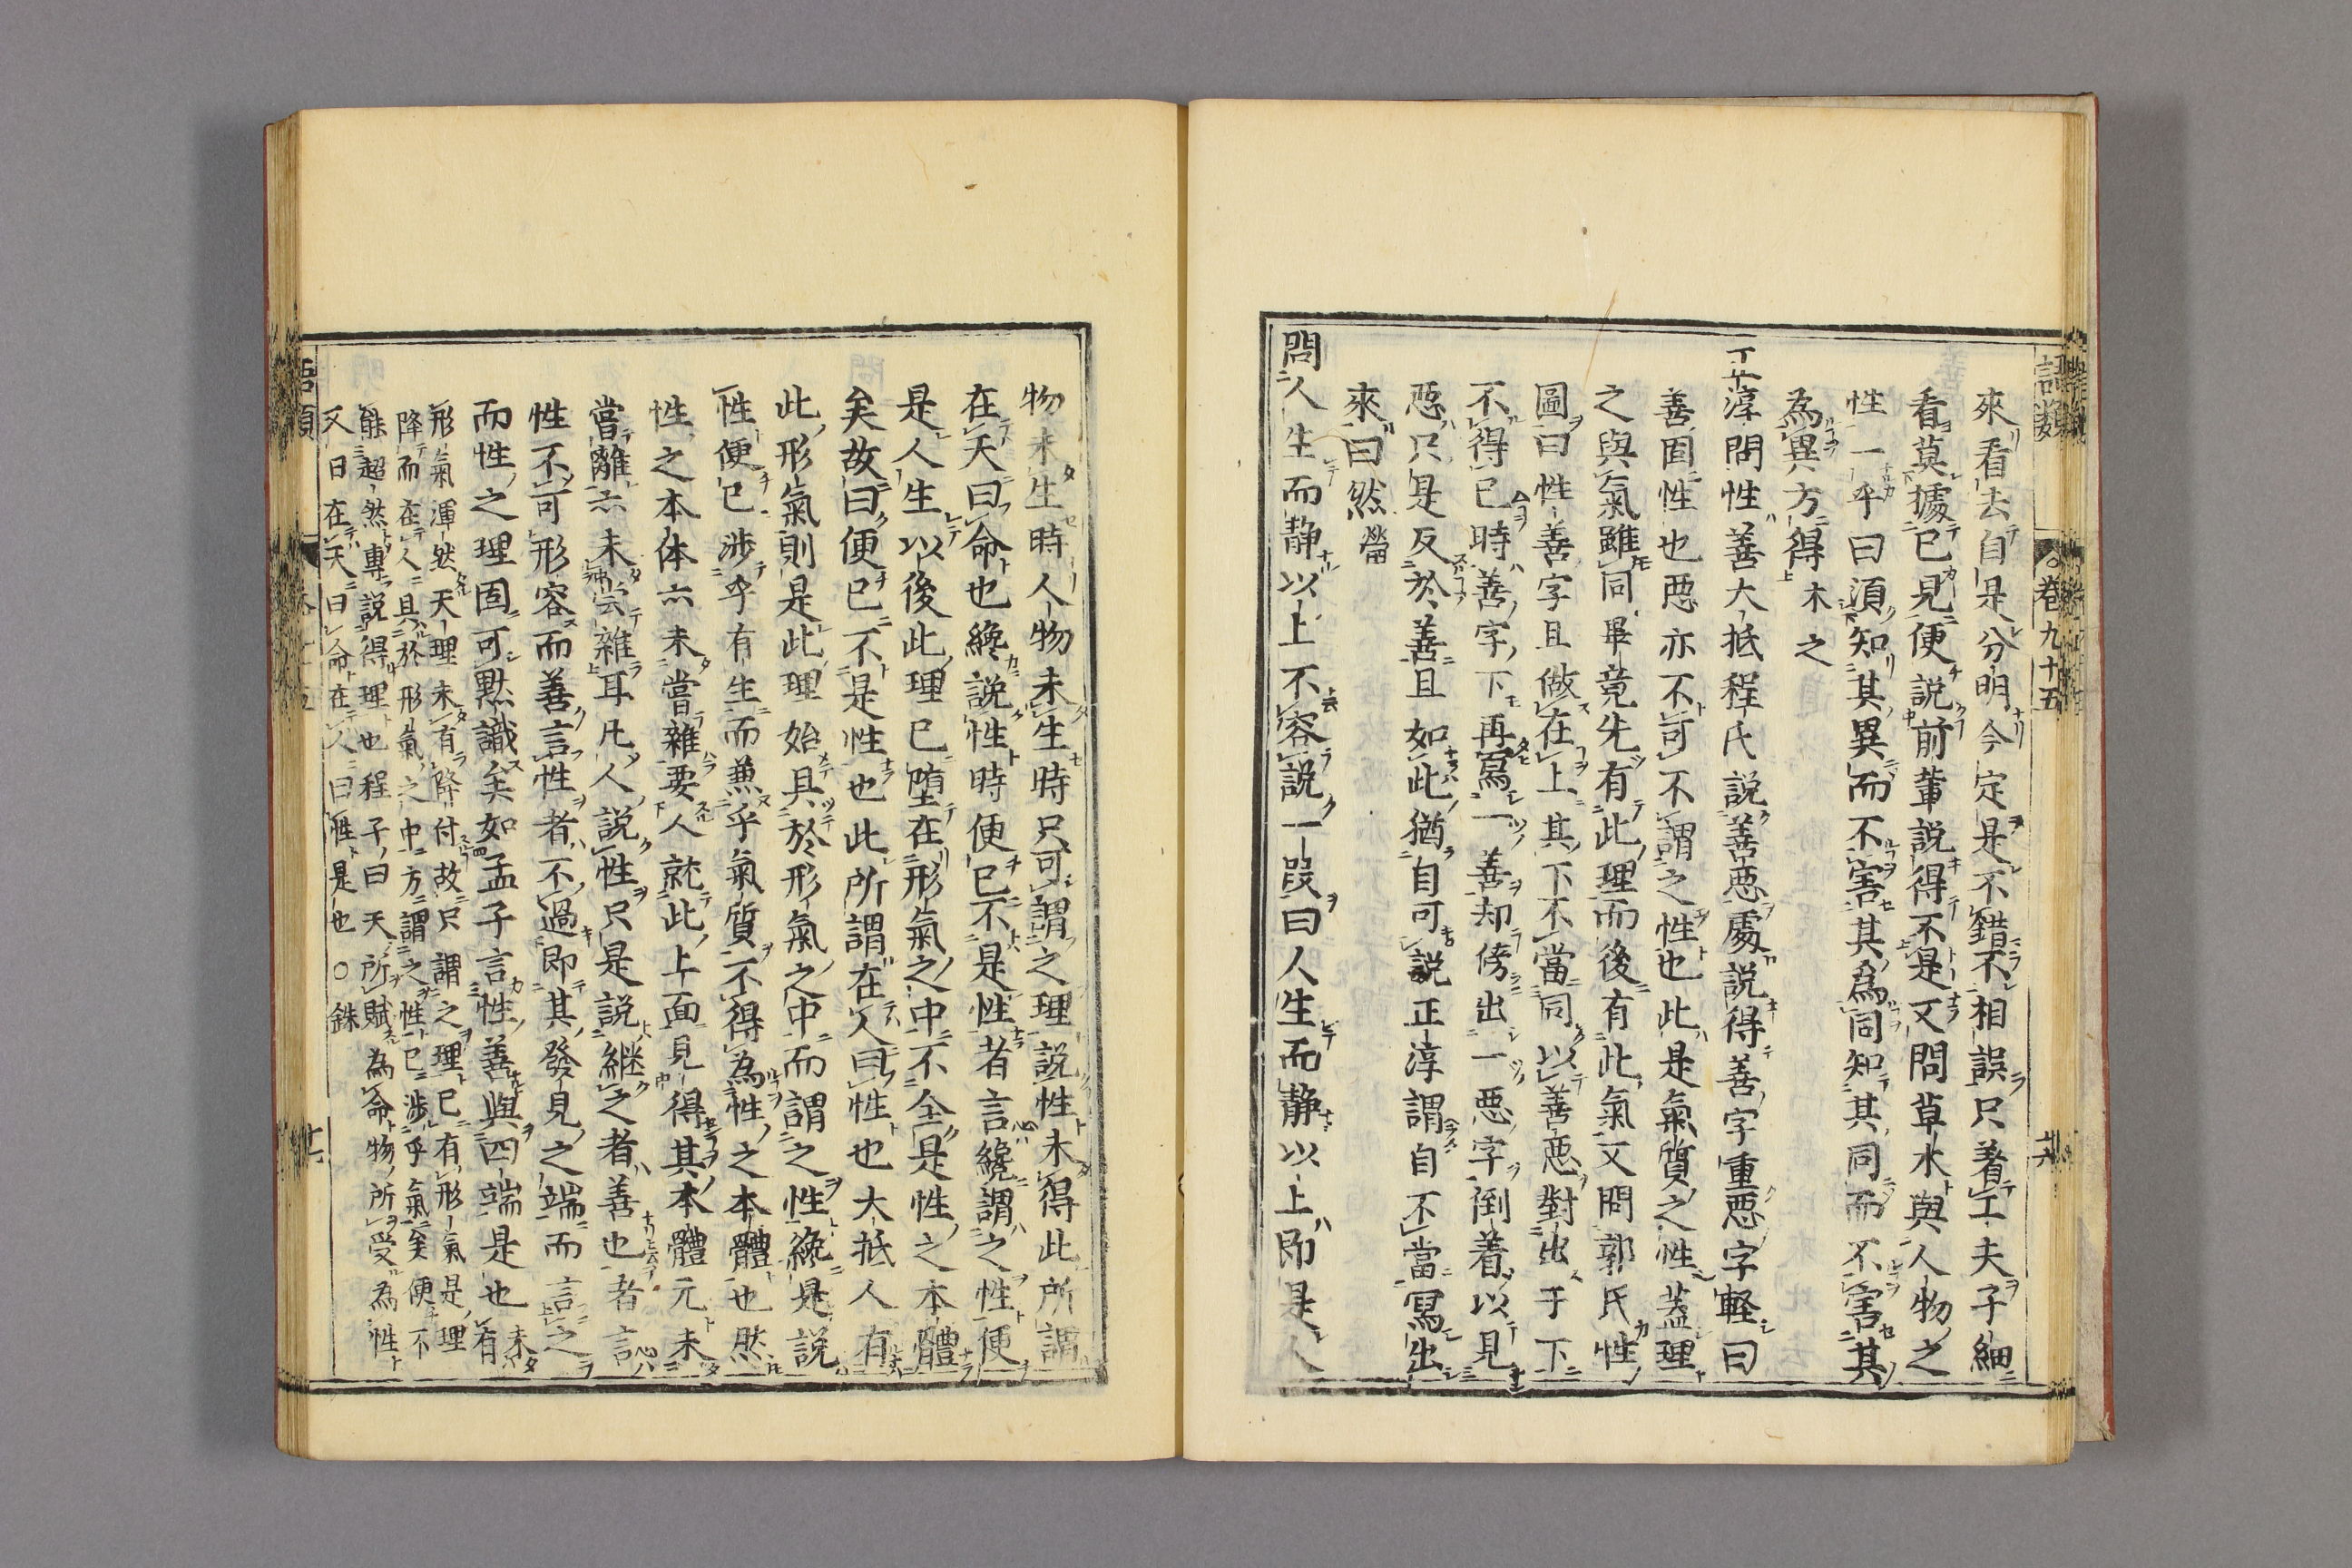 語類
卷九十五
十六
來看去自是分明今定是不錯不相誤只着工夫子細
看莫據已見便說前輩說得不是又問草木與人物之
性一乎曰湏知其異而不害其爲同知其同而不害其
為異方得 木之
正淳問性善大抵程氏說善惡處說得善字重惡字軽曰
善固性也惡亦不可不謂之性也此是氣質之性蓋理
之與氣雖同畢竟先有此理而後有此氣又問郭氏性
圖曰性善字且做在上其下不當同以善惡對出于下
不得已時善字下再寫一善却傍出一惡字倒着以見
惡只是反於善且如此猶自可說正淳謂自不當寫出
來曰然 㽦
問人生而静以上不容說一段曰人生而静以上即是人
物未生時人物未生時只可謂之理說性未得此所謂
在天曰命也纔說性時便已不是性者言纔謂之性便
是人生以後此理已堕在形氣之中不全是性之本體
矣故曰便已不是性也此所謂在人曰性也大抵人有
此形氣則是此理始具於形氣之中而謂之性纔是說
性便已涉乎有生而兼乎氣質不得為性之本體也然
性之本体亦未嘗雜要人就此上面見得其本體元未
嘗離亦未嘗雜耳凡人說性只是說継之者善也者言
性不可形容而善言性者不過即其發見之端而言之
而性之理固可黙識矣如孟子言性善與四端是也 未有
形氣渾然天理未有降付故只謂之理已有形氣是理
降而在人具於形氣之中方謂之性已涉乎氣矣便不
能超然專說得理也程子曰天所賦為命物所受為性
又曰在天曰命在人曰性是也 ○ 銖
語類